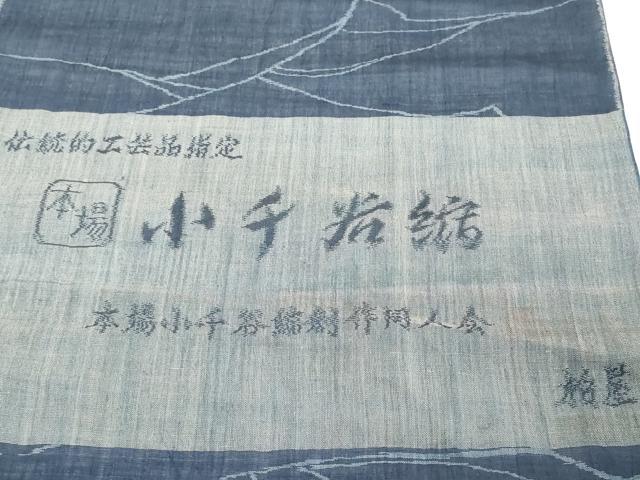 伝統的工芸品指定
本場
小千谷縮
本場小千谷縮創作同人会